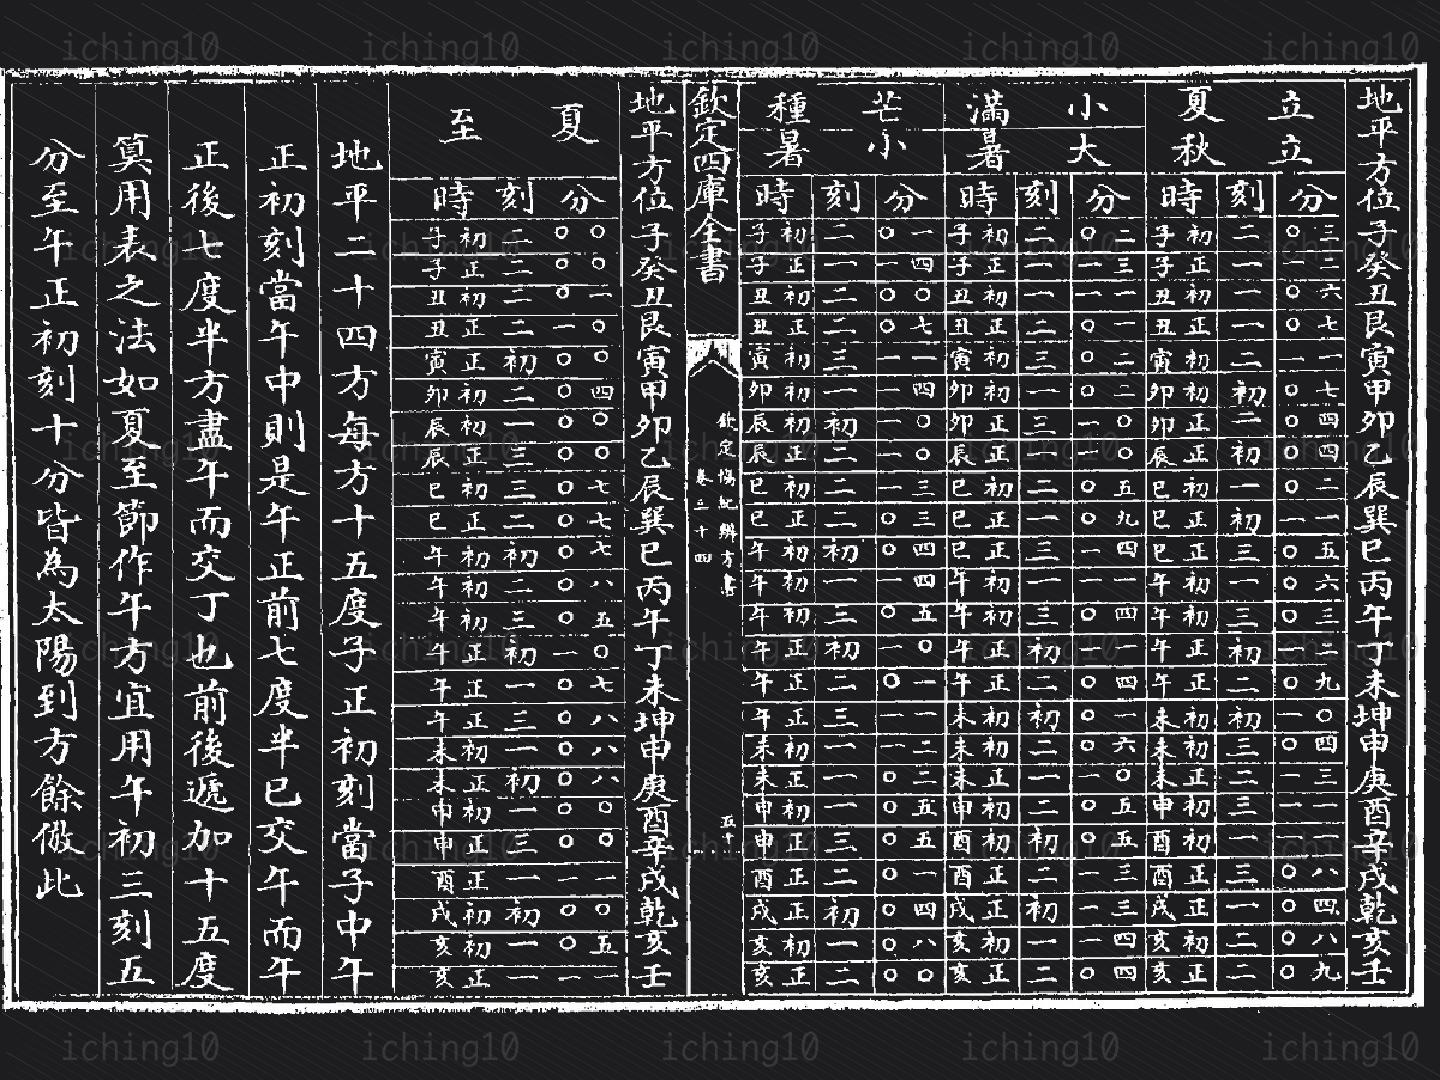 地平方位子癸丑艮寅甲卯乙辰巽巳丙午丁未坤申庚酉辛戌乾亥壬
立夏
立秋
時 刻 分
子初 二 〇三
子正 一 一二
丑初 一 〇六
丑正 一 〇七
寅初 二 一一
卯初 初 〇七
卯正 二 〇四
辰正 初 〇四
巳初 一 〇二
巳正 初 一一
巳正 三 〇五
午初 一 〇六
午初 三 〇三
午正 初 一二
午正 二 〇九
未初 初 一〇
未初 三 〇四
未正 二 一三
申初 三 一一
酉初 一 一一
酉正 三 〇八
戌正 一 〇四
亥初 二 〇八
亥正 二 〇九
小滿
大暑
時 刻 分
子初 二 〇二
子正 一 一三
丑初 一 一一
丑正 二 〇一
寅初 三 〇二
卯初 一 〇二
卯正 三 一〇
辰正 一 一〇
巳初 二 〇五
巳正 一 〇九
巳正 三 一四
午初 一 一一
午初 三 〇四
午正 初 一一
午正 二 〇四
未初 初 〇一
未初 二 〇六
未正 一 一〇
申初 二 〇五
酉初 初 〇五
酉正 二 一三
戌正 初 一三
亥初 一 一四
亥正 二 〇四
芒種
小暑
時 刻 分
子初 二 〇一
子正 一 一四
丑初 二 〇〇
丑正 二 〇七
寅初 三 一一
卯初 一 一四
辰初 初 一〇
辰正 二 一〇
巳初 二 一三
巳正 二 〇三
午初 初 〇四
午初 一 一四
午初 三 〇五
午正 初 一〇
午正 二 〇一
午正 三 一一
未初 一 一二
未正 一 〇二
申初 一 〇五
申正 三 〇五
酉正 二 〇一
戌正 初 〇四
亥初 一 〇八
亥正 二 〇〇
欽定四庫全書
欽定協紀辨方書
卷三十四
五十
地平方位子癸丑艮寅甲卯乙辰巽巳丙午丁未坤申庚酉辛戌乾亥壬
夏至
時 刻 分
子初 二 〇〇
子正 二 〇〇
丑初 二 〇一
丑正 二 一〇
寅正 初 〇〇
卯初 二 〇四
辰初 一 〇〇
辰正 三 〇〇
巳初 三 〇七
巳正 二 〇七
午初 初 〇七
午初 二 〇八
午初 三 〇五
午正 初 一〇
午正 一 〇七
午正 三 〇八
未初 一 〇八
未正 初 〇八
申初 一 〇〇
申正 三 〇〇
酉正 一 一一
戌初 初 〇〇
亥初 一 〇五
亥正 一 一一
地平二十四方每方十五度子正初刻當子中午
正初刻當午中則是午正前七度半已交午而午
正後七度半方盡午而交丁也前後遞加十五度
算用表之法如夏至節作午方宜用午初三刻五
分至午正初刻十分皆為太陽到方餘倣此
iching10